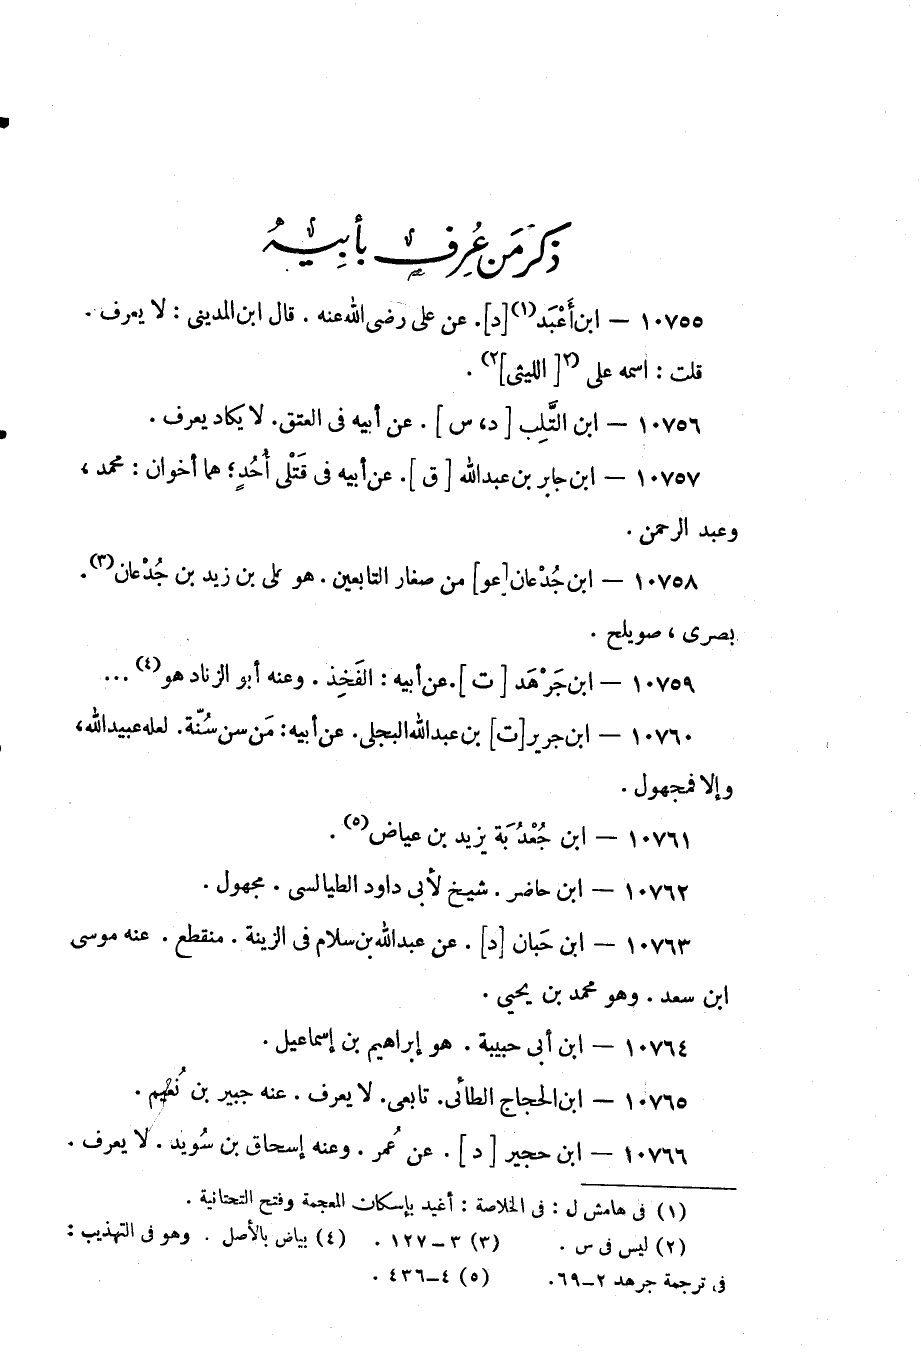 ذكر من عُرِف بأبيه
١٠٧٥٥ – ابن أَعْبَد(١)[د]. عن على رضى الله عنه . قال ابن المدينى : لا يعرف .
قلت : اسمه على (٢[ الليثى]٢) .
١٠٧٥٦ – ابن التَّلِب [ د، س ] . عن أبيه فى العتق. لا يكاد يعرف .
١٠٧٥٧ – ابن جابر بن عبدالله [ ق ]. عن أبيه فى قَتْلى أُحُدٍ؛ هما أخوان : محمد ،
وعبد الرحمن .
١٠٧٥٨ – ابن جُدْعان[عو] من صغار التابعين . هو على بن زيد بن جُدْعان(٣).
بصرى ، صويلح .
١٠٧٥٩ – ابن جَرْهَد [ ت ].عن أبيه : الفَخِذ . وعنه أبو الزناد هو(٤) ...
١٠٧٦٠ – ابن جرير[ت] بن عبدالله البجلى. عن أبيه: مَن سن سُنّة. لعله عبيدالله،
وإلا فمجهول .
١٠٧٦١ – ابن جُعْدُبَة يزيد بن عياض(٥) .
١٠٧٦٢ – ابن حاضر . شيخ لأبى داود الطيالسى . مجهول .
١٠٧٦٣ – ابن حَبان [د] . عن عبدالله بن سلام فى الزينة . منقطع . عنه موسى
ابن سعد . وهو محمد بن يحيى .
١٠٧٦٤ – ابن أبى حبيبة . هو إبراهيم بن إسماعيل .
١٠٧٦٥ – ابن الحجاج الطائى. تابعى. لا يعرف . عنه جبير بن نُعَيم .
١٠٧٦٦ – ابن حجير [ د ] . عن عُمر . وعنه إسحاق بن سُويد . لا يعرف .
(١) فى هامش ل : فى الخلاصة : أغيد بإسكان المعجمة وفتح التحتانية .
(٢) ليس فى س . (٣) ٣–١٢٧ . (٤) بياض بالأصل . وهو فى التهذيب :
فى ترجمة جرهد ٢–٦٩. (٥) ٤–٤٣٦ .